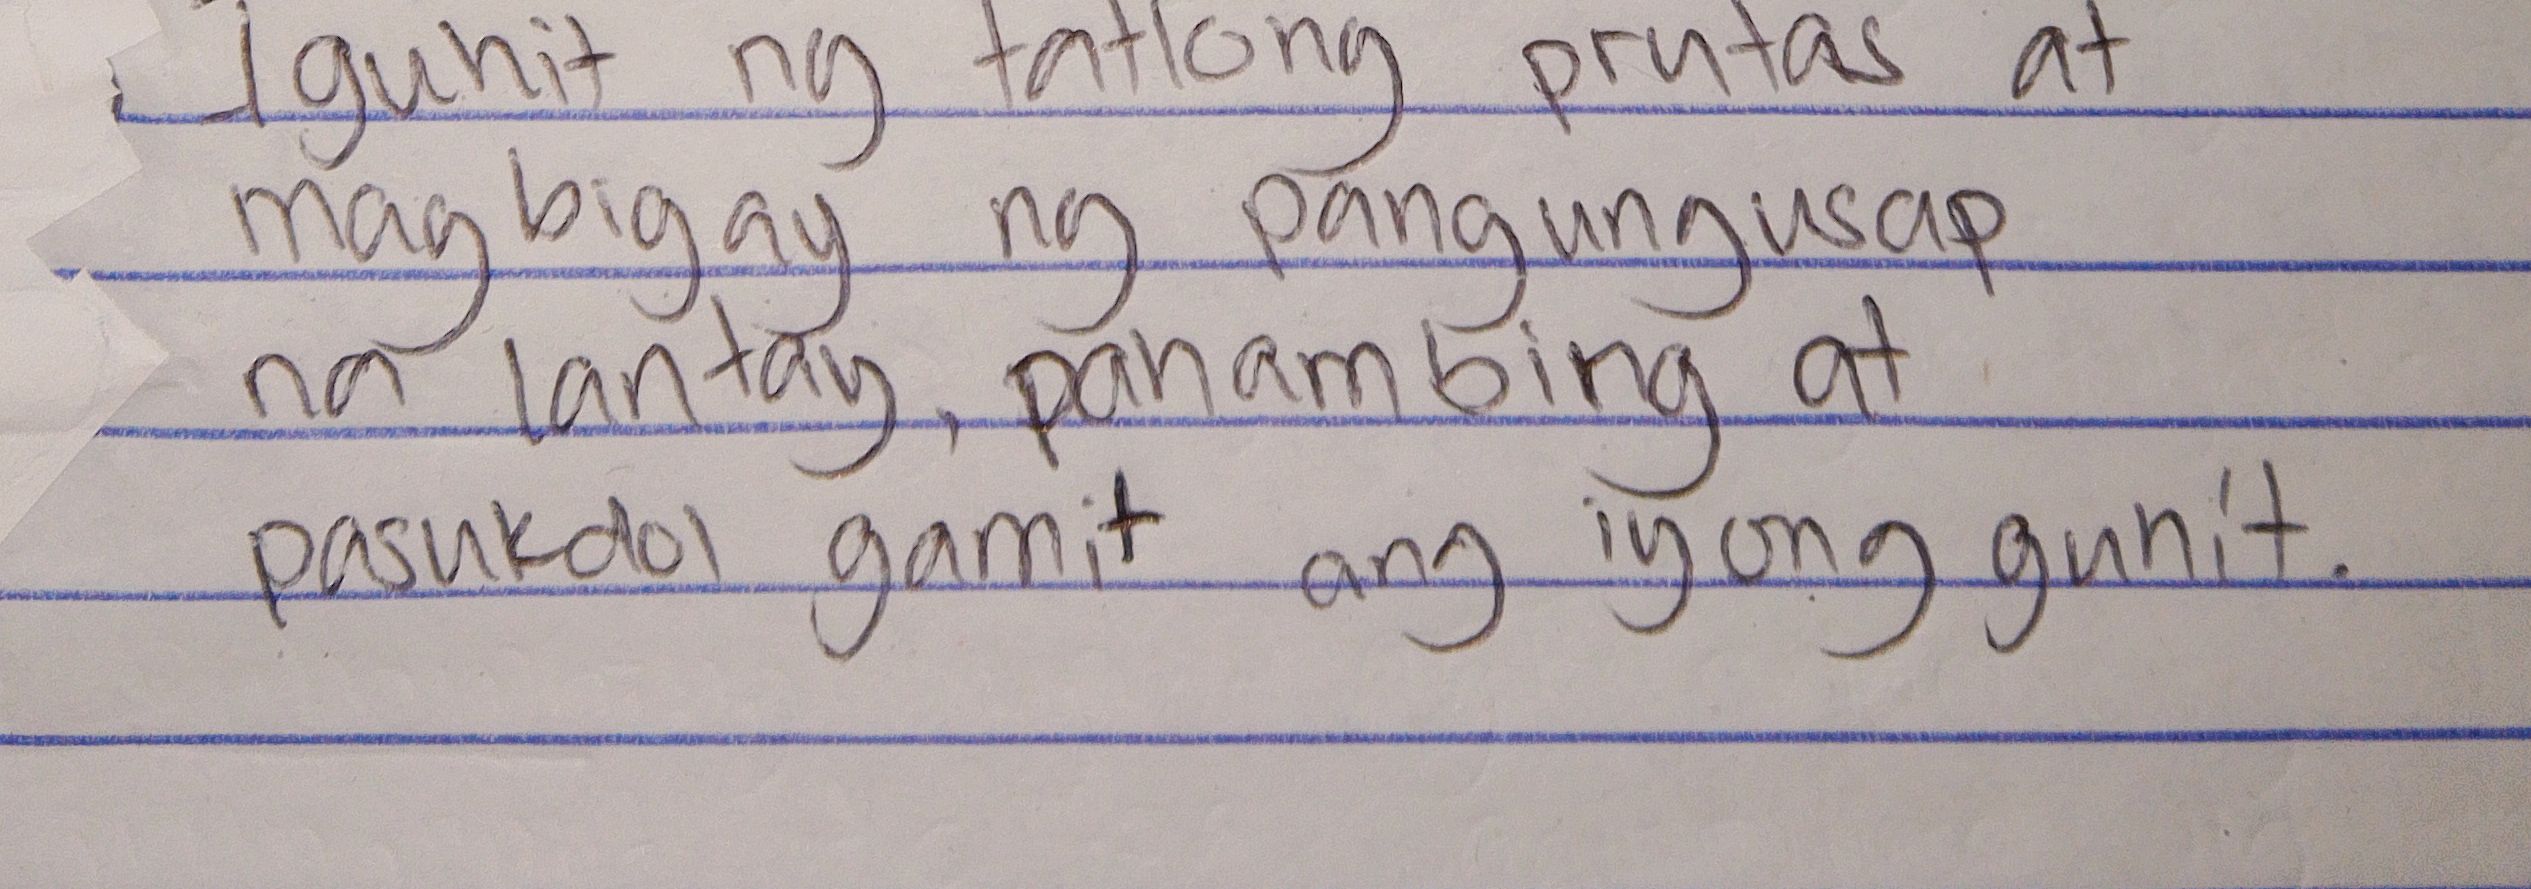 Iguhit ng tatlong prutas at
magbigay ng pangungusap
na lantay, pahambing at
pasukdol gamit ang iyong guhit.